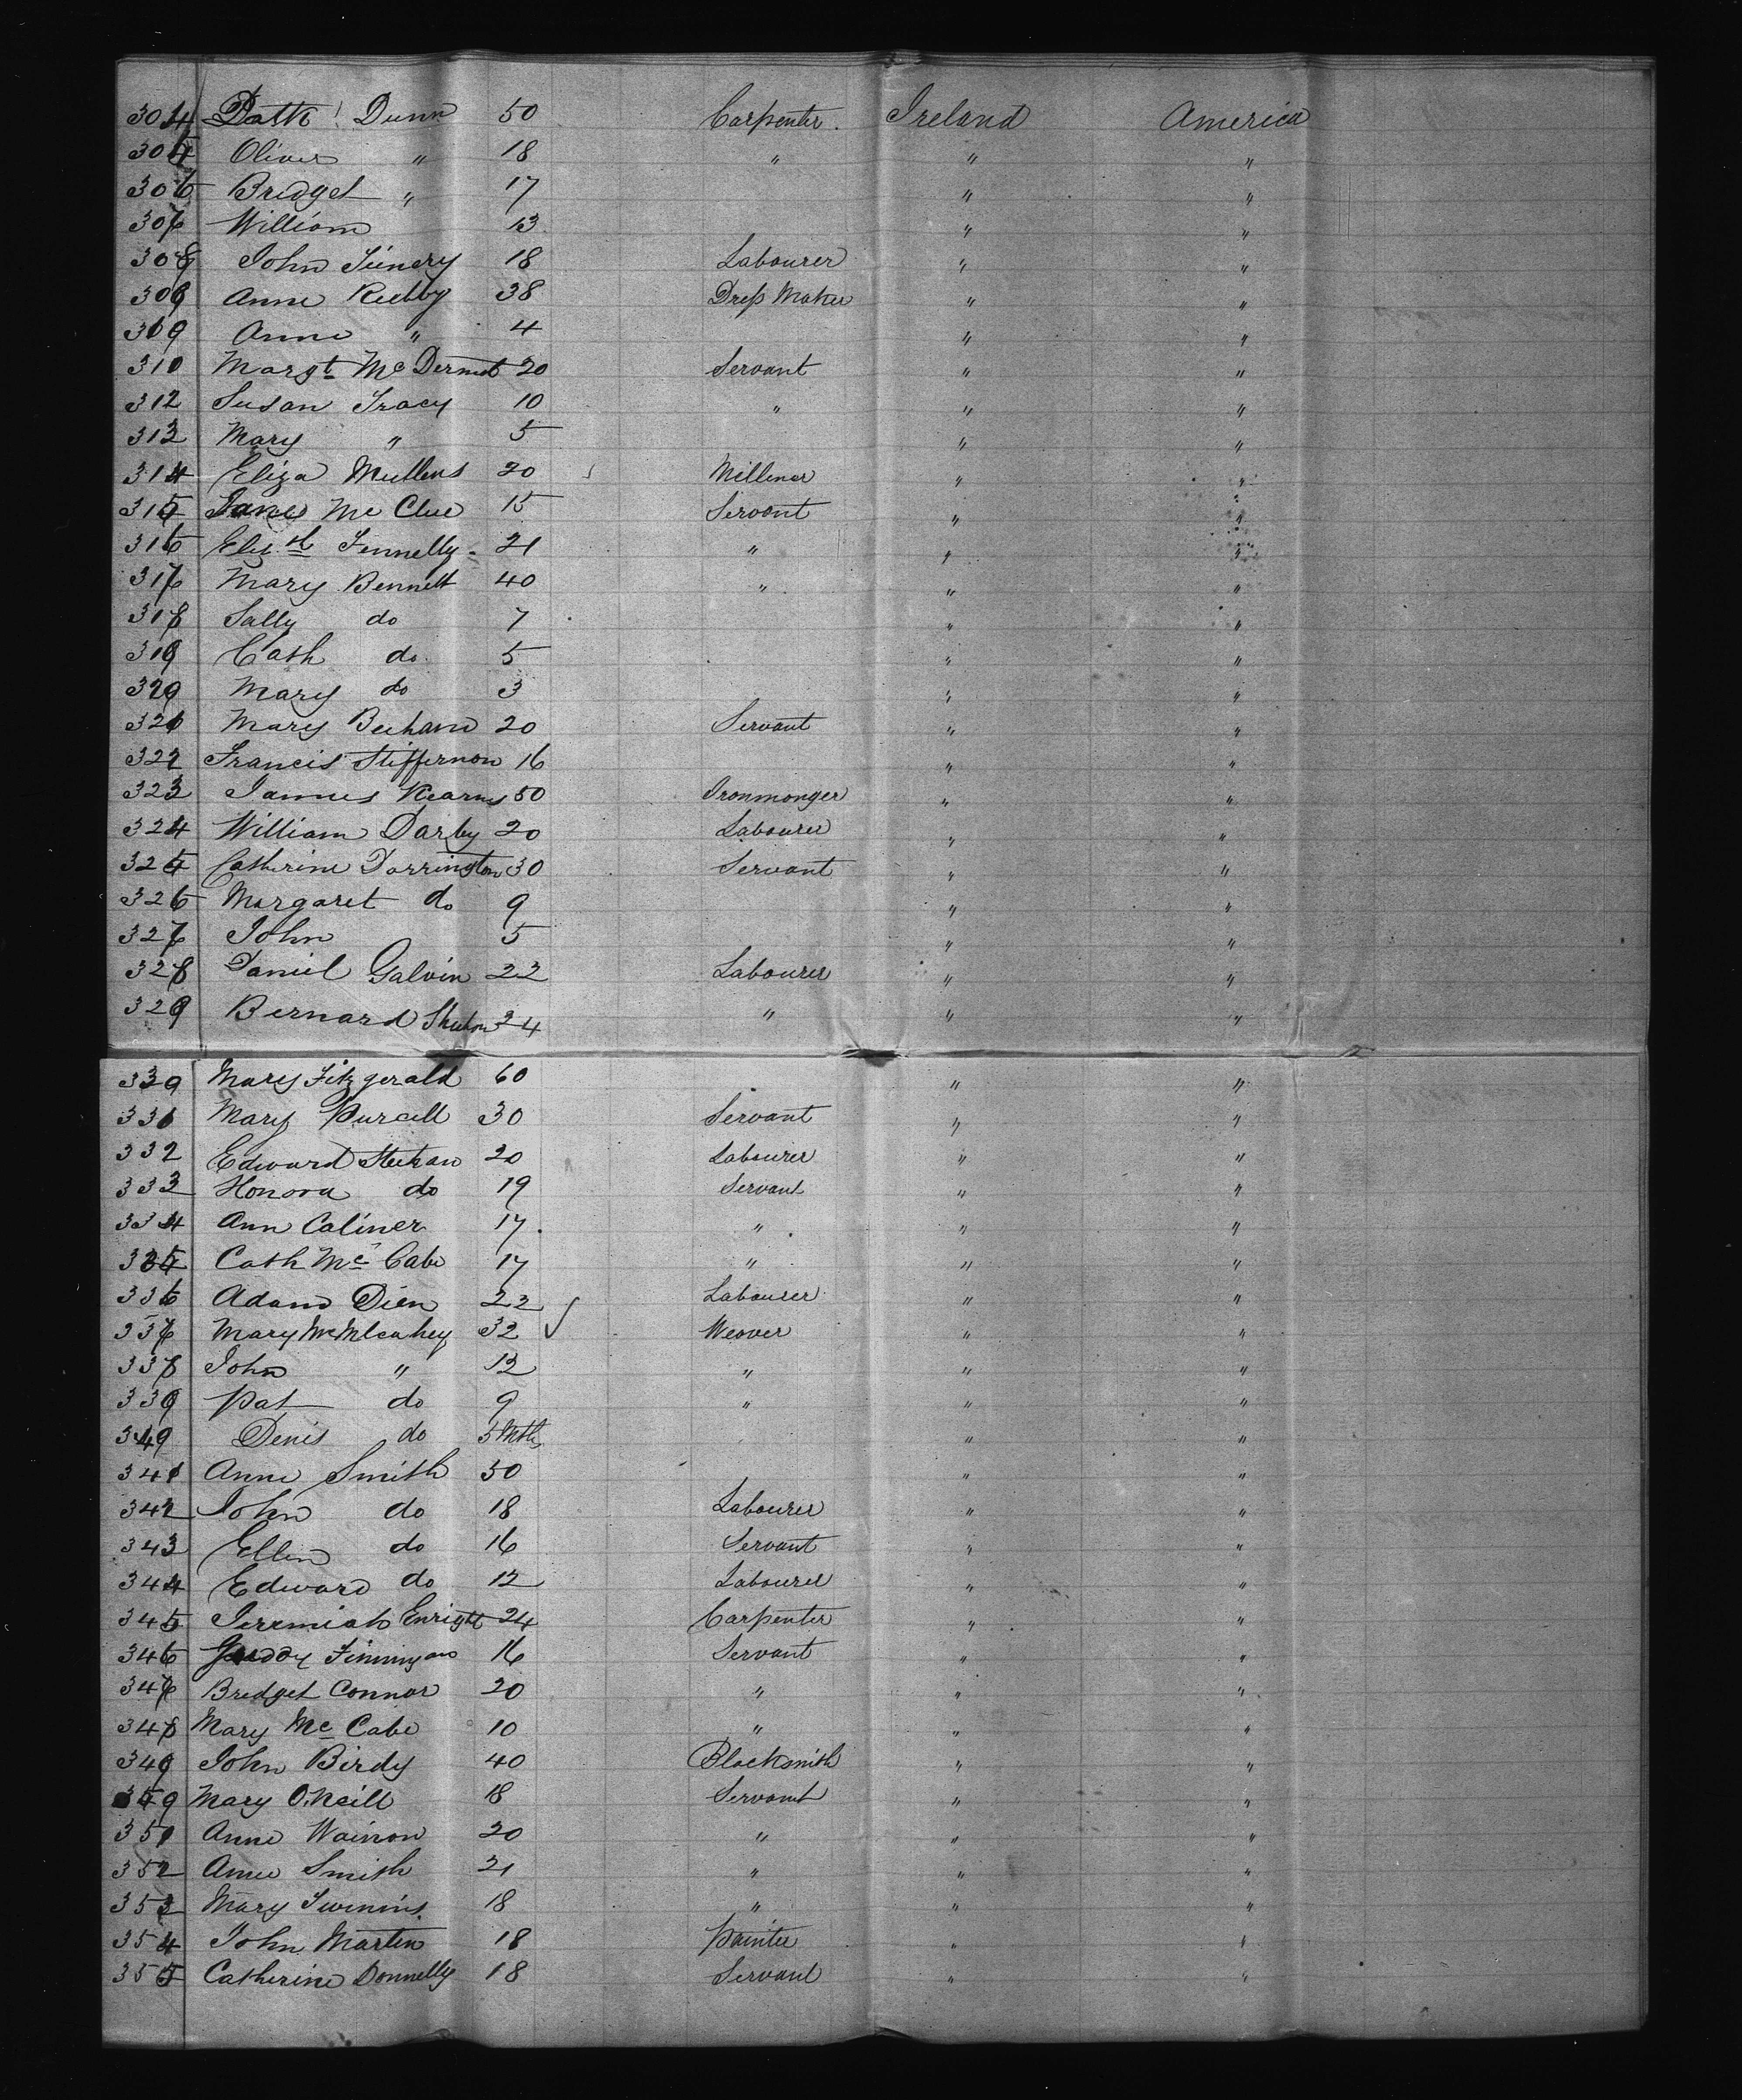 304 Patk Dunn 50 Carpenter. Ireland America
305 Oliver " 18 " " "
306 Bridget " 17 " "
307 William 13 " "
308 John 18 Labourer " "
309 Anne 38 Dress Maker " "
310 Anne " 4 " "
311 Margt McDermot 20 Servant " "
312 Susan Tracy 10 " " "
313 Mary " 5 " "
314 Eliza Mullens 20 Millener " "
315 Jane Mc Clue 15 Servant " "
316 Elizth Fennelly 21 " " "
317 Mary Bennett 40 " " "
318 Sally do 7 " "
319 Cath do 5 " "
320 Mary do 3 " "
321 Mary 20 Servant " "
322 Francis 16 " "
323 James Kearns 50 Ironmonger " "
324 William Darby 20 Labourer " "
325 Catherine Dorrington 30 Servant " "
326 Margaret do 9 " "
327 John 5 " "
328 Daniel Galvin 22 Labourer " "
329 Bernard 24 " " "
330 Mary Fitzgerald 60 " "
331 Mary Purcell 30 Servant " "
332 Edward 20 Labourer " "
333 Honora do 19 Servant " "
334 Ann Caliner 17 " " "
335 Cath Mc Cabe 17 " " "
336 Adam Dien 22 Labourer " "
337 Mary 32 Weaver " "
338 John " 12 " " "
339 Pat do 9 " " "
340 Denis do 5 Mths " "
341 Anne Smith 50 " "
342 John do 18 Labourer " "
343 Ellen do 16 Servant " "
344 Edward do 12 Labourer " "
345 Jeremiah Enright 24 Carpenter " "
346 Finnigan 16 Servant " "
347 Bridget Connor 20 " " "
348 Mary Mc Cabe 10 " " "
349 John Birdy 40 Blacksmith " "
350 Mary O.Neill 18 Servant " "
351 Anne 20 " " "
352 Anne Smith 21 " " "
353 Mary 18 " " "
354 John Martin 18 Painter " "
355 Catherine Donnelly 18 Servant " "